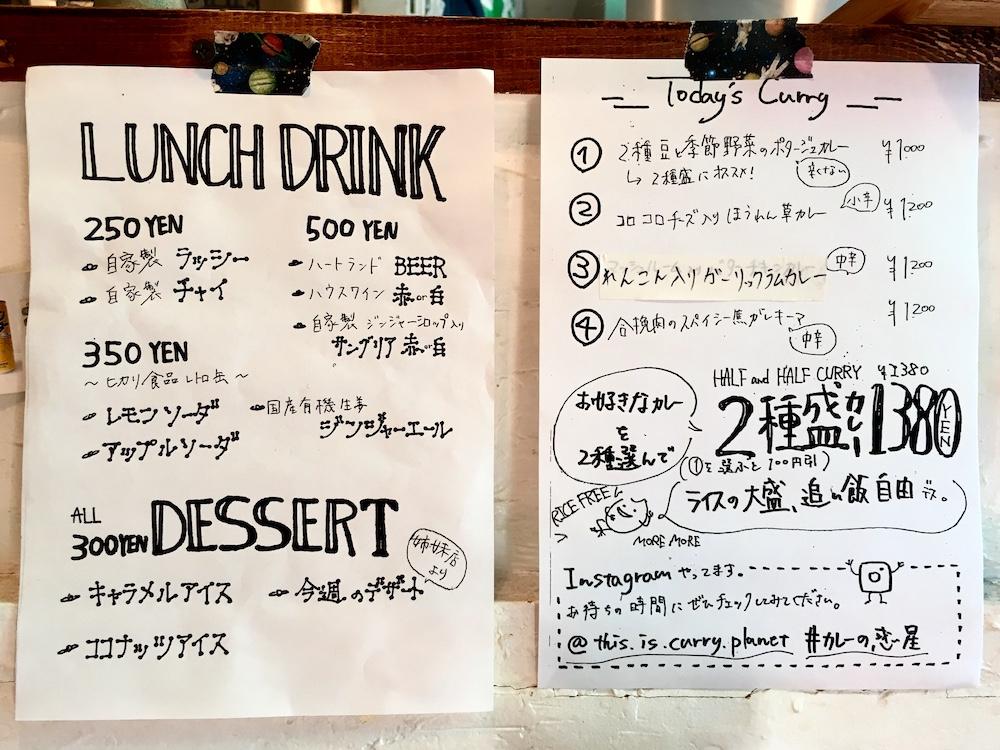 LUNCH DRINK
250 YEN
自家製 ラッシー
自家製 チャイ
350 YEN
〜ヒカリ食品 レトロ缶〜
レモンソーダ
アップルソーダ
国産有機生姜
ジンジャーエール
500 YEN
ハートランド BEER
ハウスワイン 赤or白
自家製 ジンジャーシロップ入り
サングリア 赤or白
ALL
300YEN DESSERT
姉妹店
より
キャラメルアイス
今週のデザート
ココナッツアイス
Today's Curry
① 2種豆と季節野菜のポタージュカレー ¥1000
↳ 2種盛にオススメ! 辛くない
② コロコロチーズ入りほうれん草カレー 小辛 ¥1200
③ れんこん入りガーリックラムカレー 中辛 ¥1200
④ 合挽肉のスパイシー焦がしキーマ ¥1200
中辛
お好きなカレー
を
2種選んで
HALF and HALF CURRY ¥1380
2種盛カレー 1380YEN
(①を選ぶと100円引)
RICE FREE
MORE MORE
ライスの大盛、追い飯自由です。
Instagramやってます。
お待ちの時間にぜひチェックしてみてください。
@this.is.curry.planet #カレーの惑星